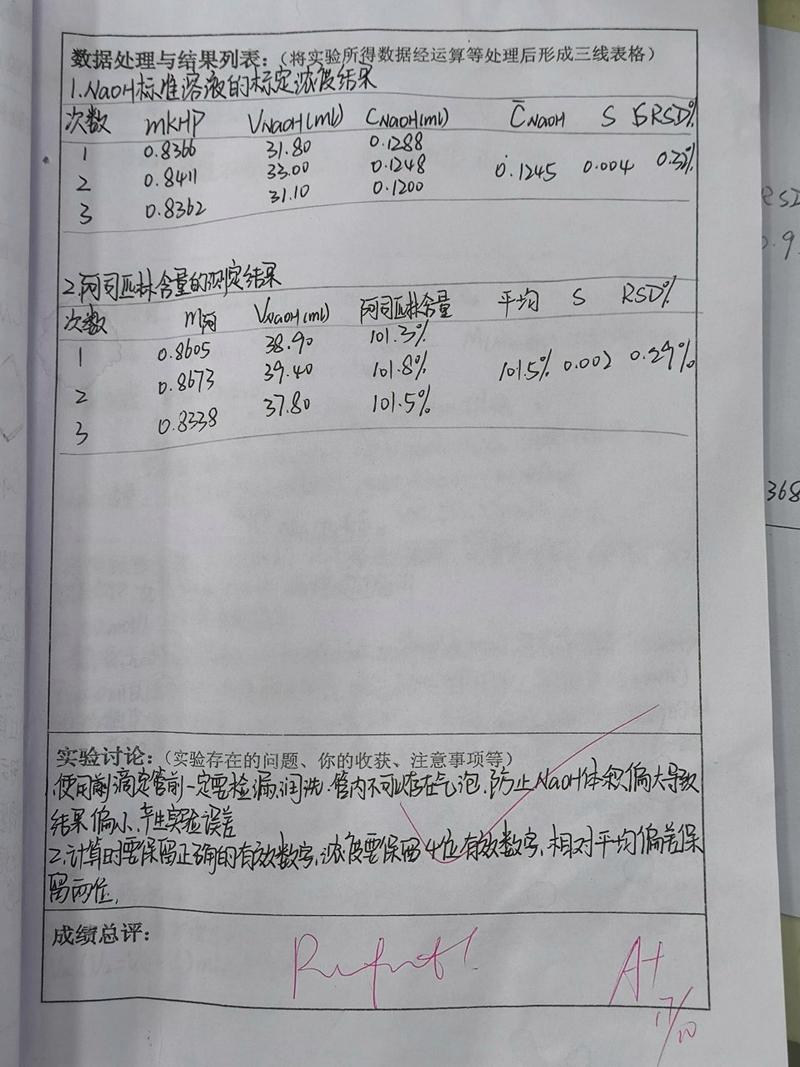 数据处理与结果列表：（将实验所得数据经运算等处理后形成三线表格）
1.NaOH标准溶液的标定浓度结果
次数 mKHP VNaOH(ml) CNaOH(ml) C̄NaOH S RSD%
1 0.8366 31.80 0.1288
2 0.8411 33.00 0.1248 0.1245 0.004 0.32%
3 0.8362 31.10 0.1200
2.阿司匹林含量的测定结果
次数 m阿 VNaOH(ml) 阿司匹林含量 平均 S RSD%
1 0.8605 38.90 101.3%
2 0.8673 39.40 101.8% 101.5% 0.002 0.29%
3 0.8338 37.80 101.5%
实验讨论：（实验存在的问题、你的收获、注意事项等）
1.使用前滴定管前一定要检漏.润洗.管内不可以存在气泡.防止NaOH体积偏大导致
结果偏小.产生实验误差
2.计算时要保留正确的有效数字,浓度要保留4位有效数字,相对平均偏差保
留两位.
成绩总评：
A+
17/10
RSD
0.9
368